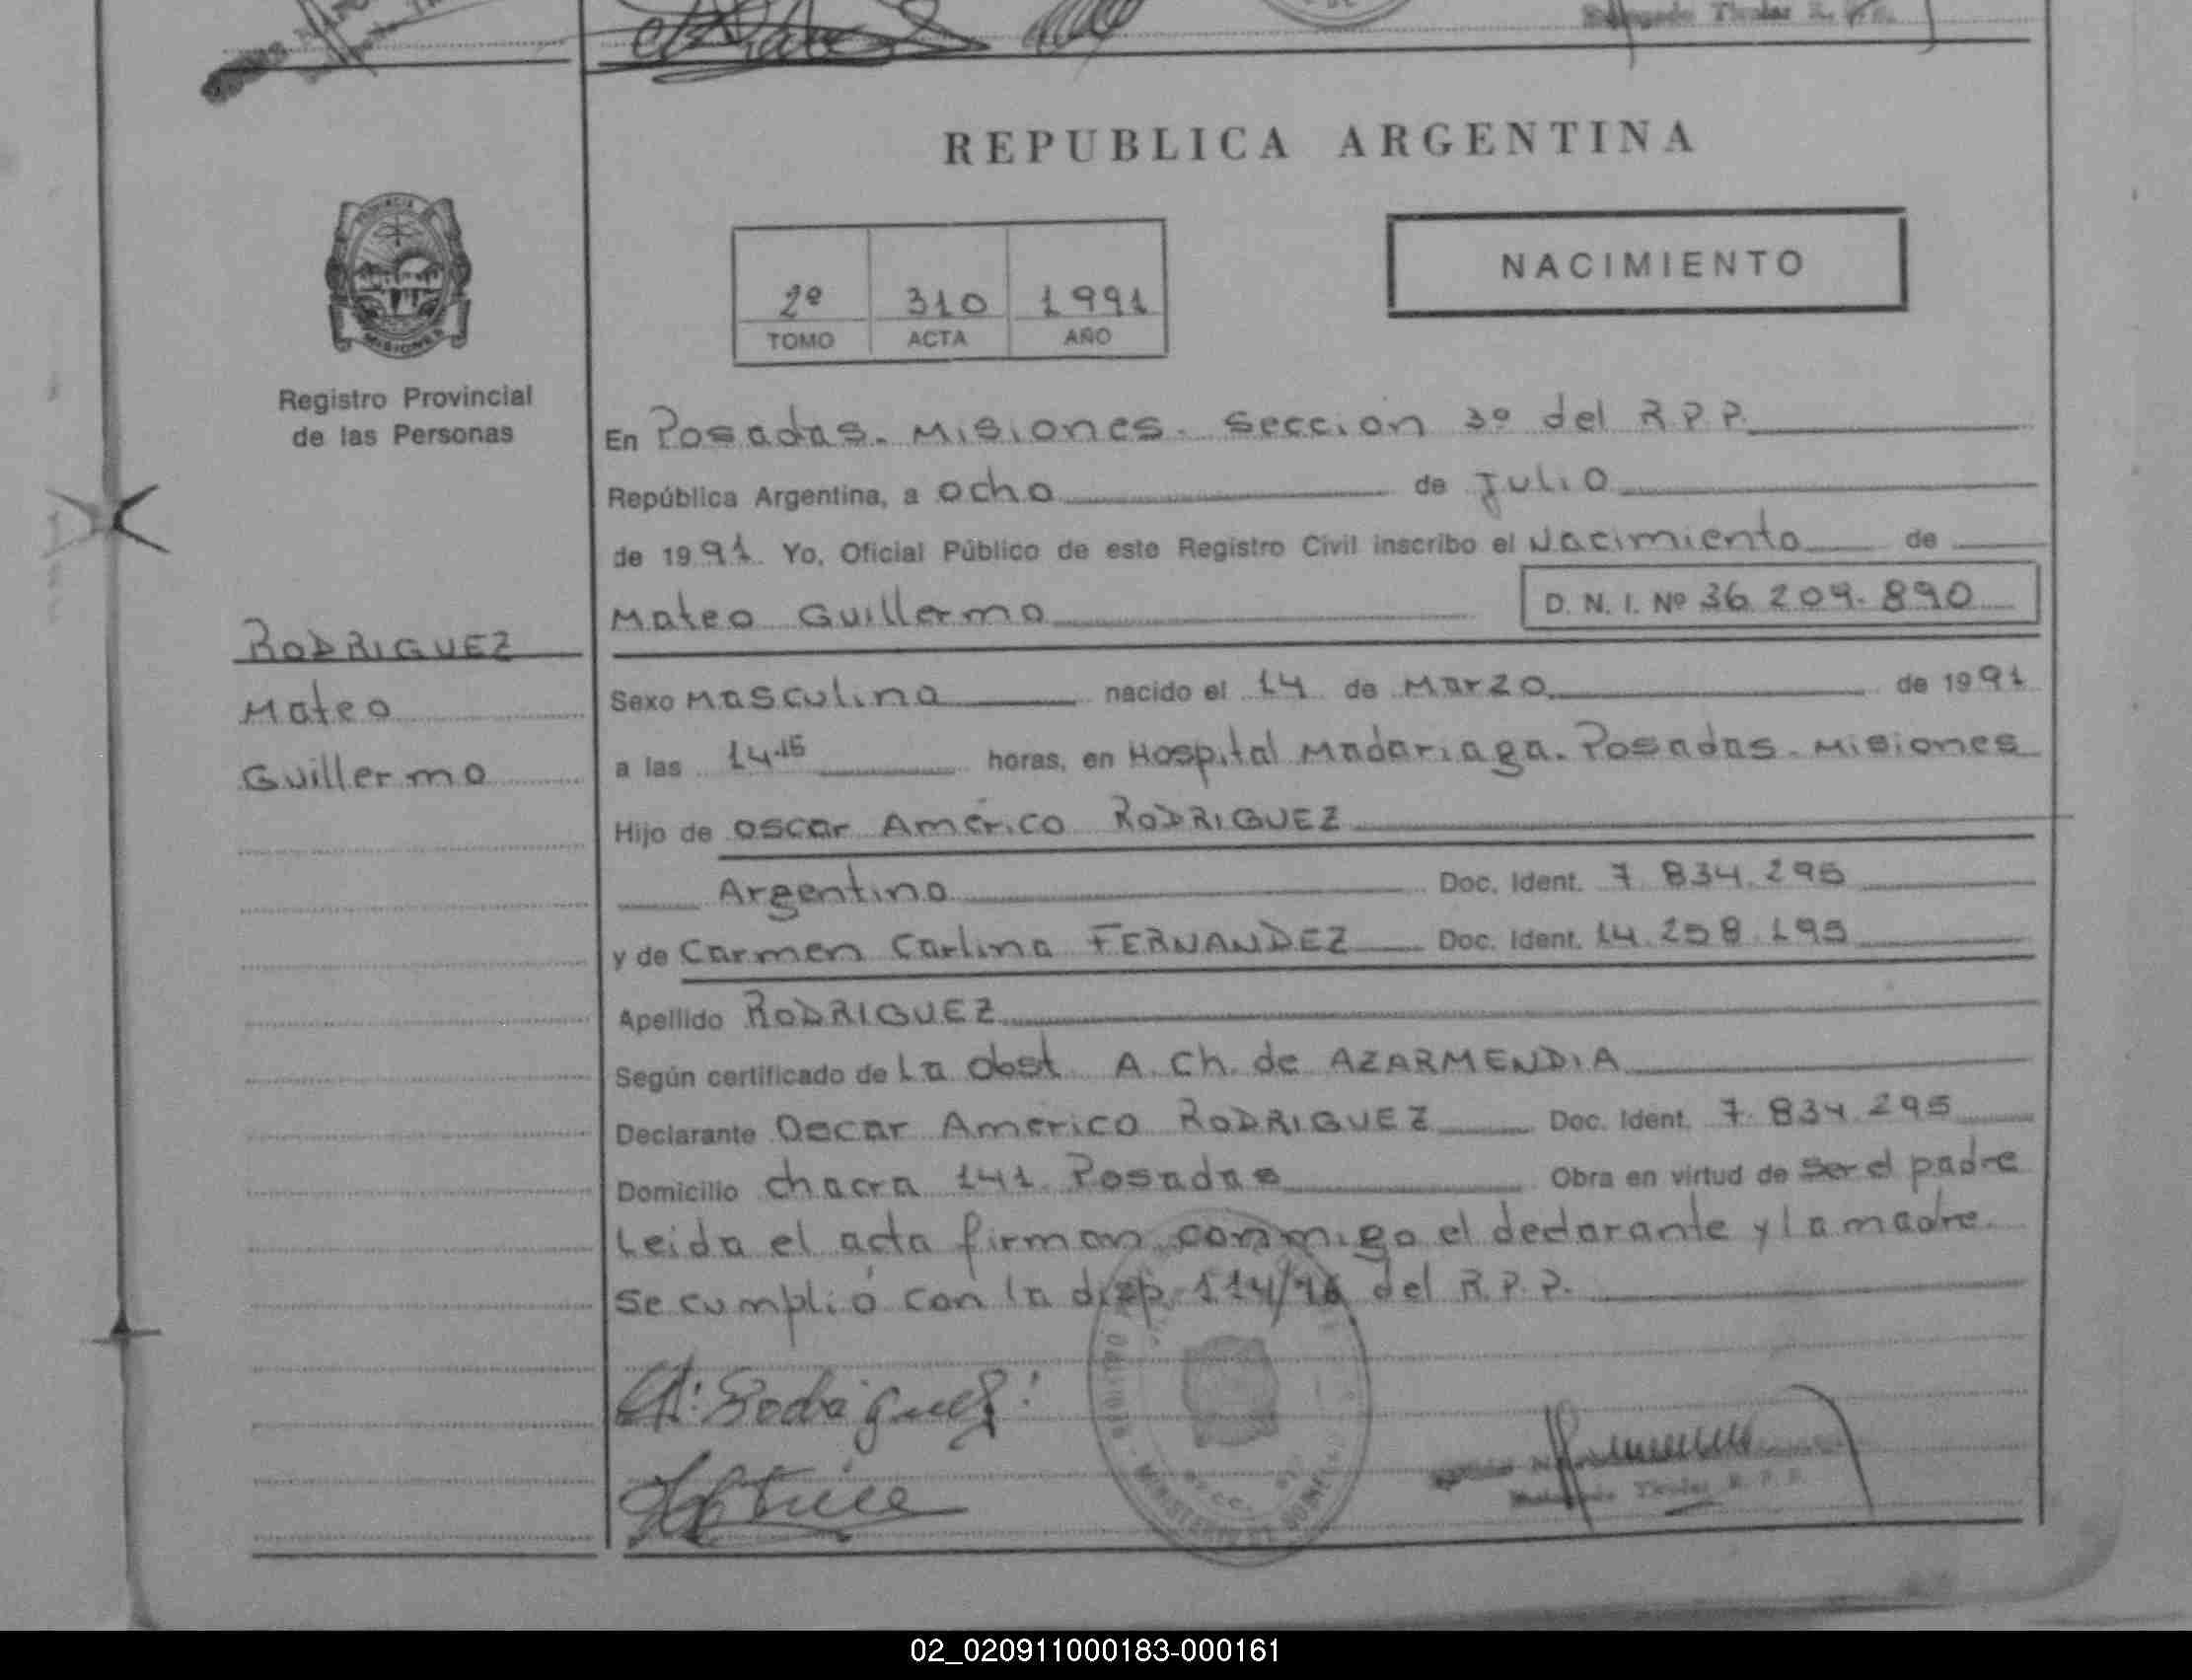 Titular R.
REPUBLICA ARGENTINA
PROVINCIA
MISIONES
2º 310 1991
TOMO ACTA AÑO
NACIMIENTO
Registro Provincial
de las Personas
En Posadas. Misiones. Seccion 3º del R.P.P.
República Argentina, a ocho de Julio
de 1991. Yo, Oficial Público de este Registro Civil inscribo el Nacimiento de
Mateo Guillermo D. N. I. Nº 36.209.890
RODRIGUEZ
Mateo
Guillermo
Sexo Masculino nacido el 14 de Marzo de 1991
a las 14.15 horas, en Hospital Madariaga. Posadas. Misiones
Hijo de Oscar Américo RODRIGUEZ
Argentino Doc. Ident. 7.834.295
y de Carmen Carlina FERNANDEZ Doc. Ident. 14.258.195
Apellido RODRIGUEZ
Según certificado de La Obst. A. Ch. de AZARMENDIA
Declarante Oscar Américo RODRIGUEZ Doc. Ident. 7.834.295
Domicilio chacra 141 Posadas Obra en virtud de ser el padre
Leida el acta firman conmigo el declarante y la madre.
Se cumplió con la disp. 114/76 del R.P.P.
A: Rodriguez:
MINISTERIO DE GOBIERNO
Titular R. P. P.
02_020911000183-000161